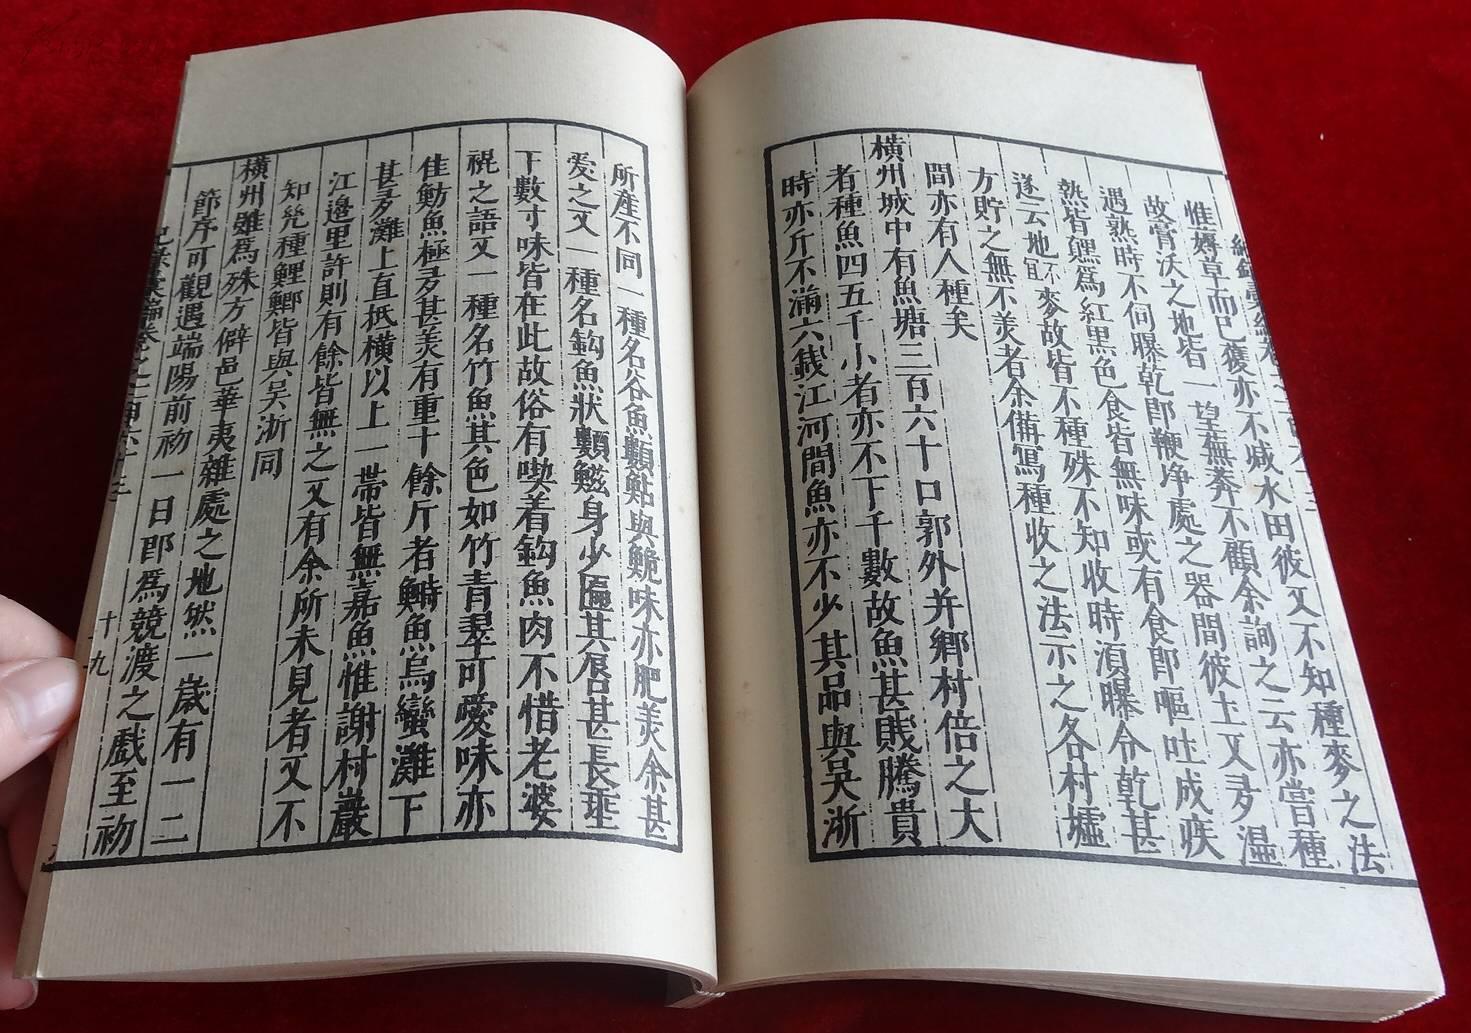 惟薅草而已獲亦不減水田彼又不知種麥之法
故膏沃之地皆一望蕪莽不顧余詢之云亦嘗種
遇熟時不伺曝乾卽鞭净處之器間彼土又多濕
熱皆鷃爲紅黑色食皆無味或有食卽嘔吐成疾
遂云地不宜麥故皆不種殊不知收時須曝令乾甚
方貯之無不美者余備寫種收之法示之各村墟
間亦有人種矣
橫州城中有魚塘三百六十口郭外并鄉村倍之大
者種魚四五千小者亦不下千數故魚甚賤騰貴
時亦斤不滿六錢江河間魚亦不少其品與吳浙
所產不同一種名谷魚顙鮎與鮠味亦肥美余甚
愛之又一種名鈎魚狀顙鰦身少匾其唇甚長垂
下數寸味皆在此故俗有喫着鈎魚肉不惜老婆
裩之語又一種名竹魚其色如竹青翠可愛味亦
佳魴魚極多甚美有重十餘斤者鰣魚烏蠻灘下
甚多灘上直抵橫以上一帶皆無嘉魚惟謝村巖
江邊里許則有餘皆無之又有余所未見者又不
知凢種鯉鯽皆與吳浙同
橫州雖爲殊方僻邑華夷雜處之地然一歲有一二
節序可觀遇端陽前初一日卽爲競渡之戲至初
十九